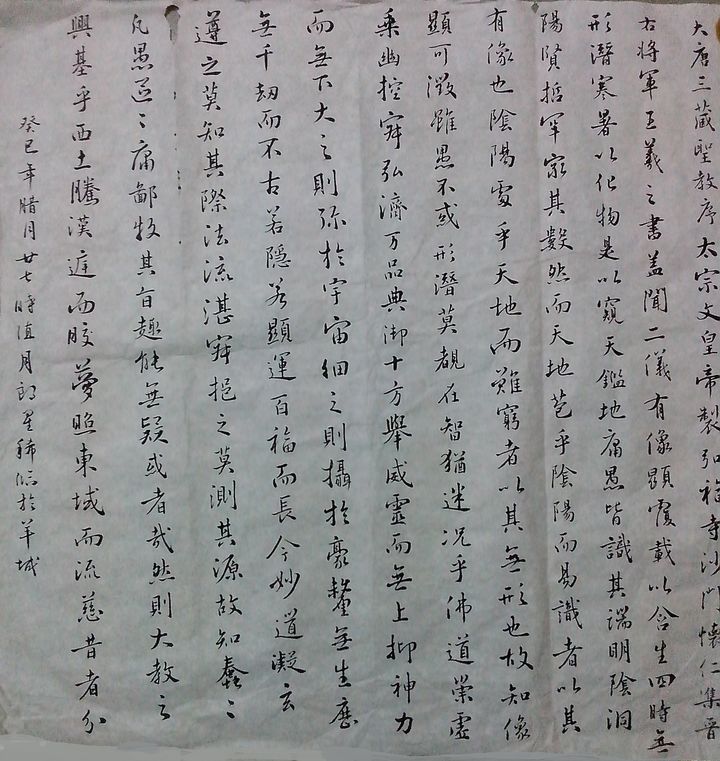 大唐三藏聖教序太宗文皇帝製弘福寺沙門懷仁集晉
右將軍王羲之書蓋聞二儀有像顯覆載以含生四時無
形潛寒暑以化物是以窺天鑑地庸愚皆識其端明陰洞
陽賢哲罕窮其數然而天地苞乎陰陽而易識者以其
有像也陰陽處乎天地而難窮者以其無形也故知像
顯可徵雖愚不惑形潛莫覩在智猶迷況乎佛道崇虛
乘幽控寂弘濟万品典御十方舉威靈而無上抑神力
而無下大之則弥於宇宙細之則攝於豪釐無生
無千劫而不古若隱若顯運百福而長今妙道凝玄
遵之莫知其際法流湛寂挹之莫測其源故知蠢〻
凡愚區〻庸鄙投其旨趣能無疑或者哉然則大教之
興基乎西土騰漢庭而皎夢照東域而流慈昔者分
癸巳年腊月廿七時值月朗星稀臨於羊城